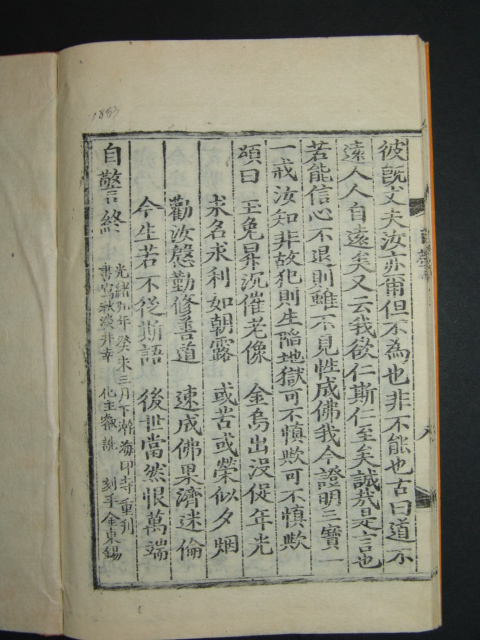 1883
彼旣丈夫汝亦爾但不為也非不能也古曰道不
遠人人自遠矣又云我欲仁斯仁至矣誠哉是言也
若能信心不退則誰不見性成佛我今證明三寶一
一戒汝知非故犯則生陷地獄可不慎歟可不慎歟
頌曰 玉兔昇沉催老像 金烏出沒促年光
求名求利如朝露 或苦或榮似夕烟
勸汝慇勤修善道 速成佛果濟迷倫
今生若不從斯語 後世當然恨萬端
自警終
光緖九年癸未三月下澣海印寺重刊
化主 刻手金東錫